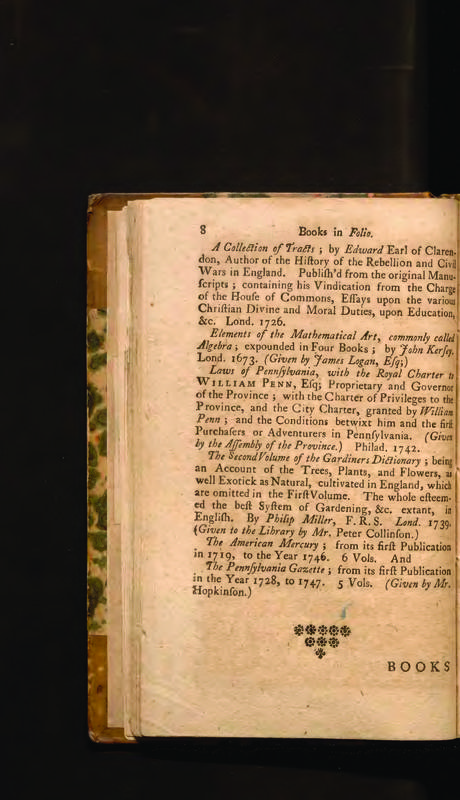 8 Books in Folio.
A Collection of Tracts ; by Edward Earl of Claren-
don, Author of the Hiſtory of the Rebellion and Civil
Wars in England. Publiſh'd from the original Manu-
ſcripts ; containing his Vindication from the Charge
of the Houſe of Commons, Eſſays upon the various
Chriſtian Divine and Moral Duties, upon Education,
&c. Lond. 1726.
Elements of the Mathematical Art, commonly called
Algebra ; expounded in Four Books ; by John Kerſey.
Lond. 1673. (Given by James Logan, Eſq;)
Laws of Pennſylvania, with the Royal Charter to
WILLIAM PENN, Eſq; Proprietary and Governor
of the Province ; with the Charter of Privileges to the
Province, and the City Charter, granted by William
Penn ; and the Conditions betwixt him and the firſt
Purchaſers or Adventurers in Pennſylvania. (Given
by the Aſſembly of the Province.) Philad. 1742.
The Second Volume of the Gardiners Dictionary ; being
an Account of the Trees, Plants, and Flowers, as
well Exotick as Natural, cultivated in England, which
are omitted in the Firſt Volume. The whole eſteem-
ed the beſt Syſtem of Gardening, &c. extant, in
Engliſh. By Philip Miller, F. R. S. Lond. 1739.
(Given to the Library by Mr. Peter Collinſon.)
The American Mercury ; from its firſt Publication
in 1719, to the Year 1746. 6 Vols. And
The Pennſylvania Gazette ; from its firſt Publication
in the Year 1728, to 1747. 5 Vols. (Given by Mr.
Hopkinſon.)
BOOKS